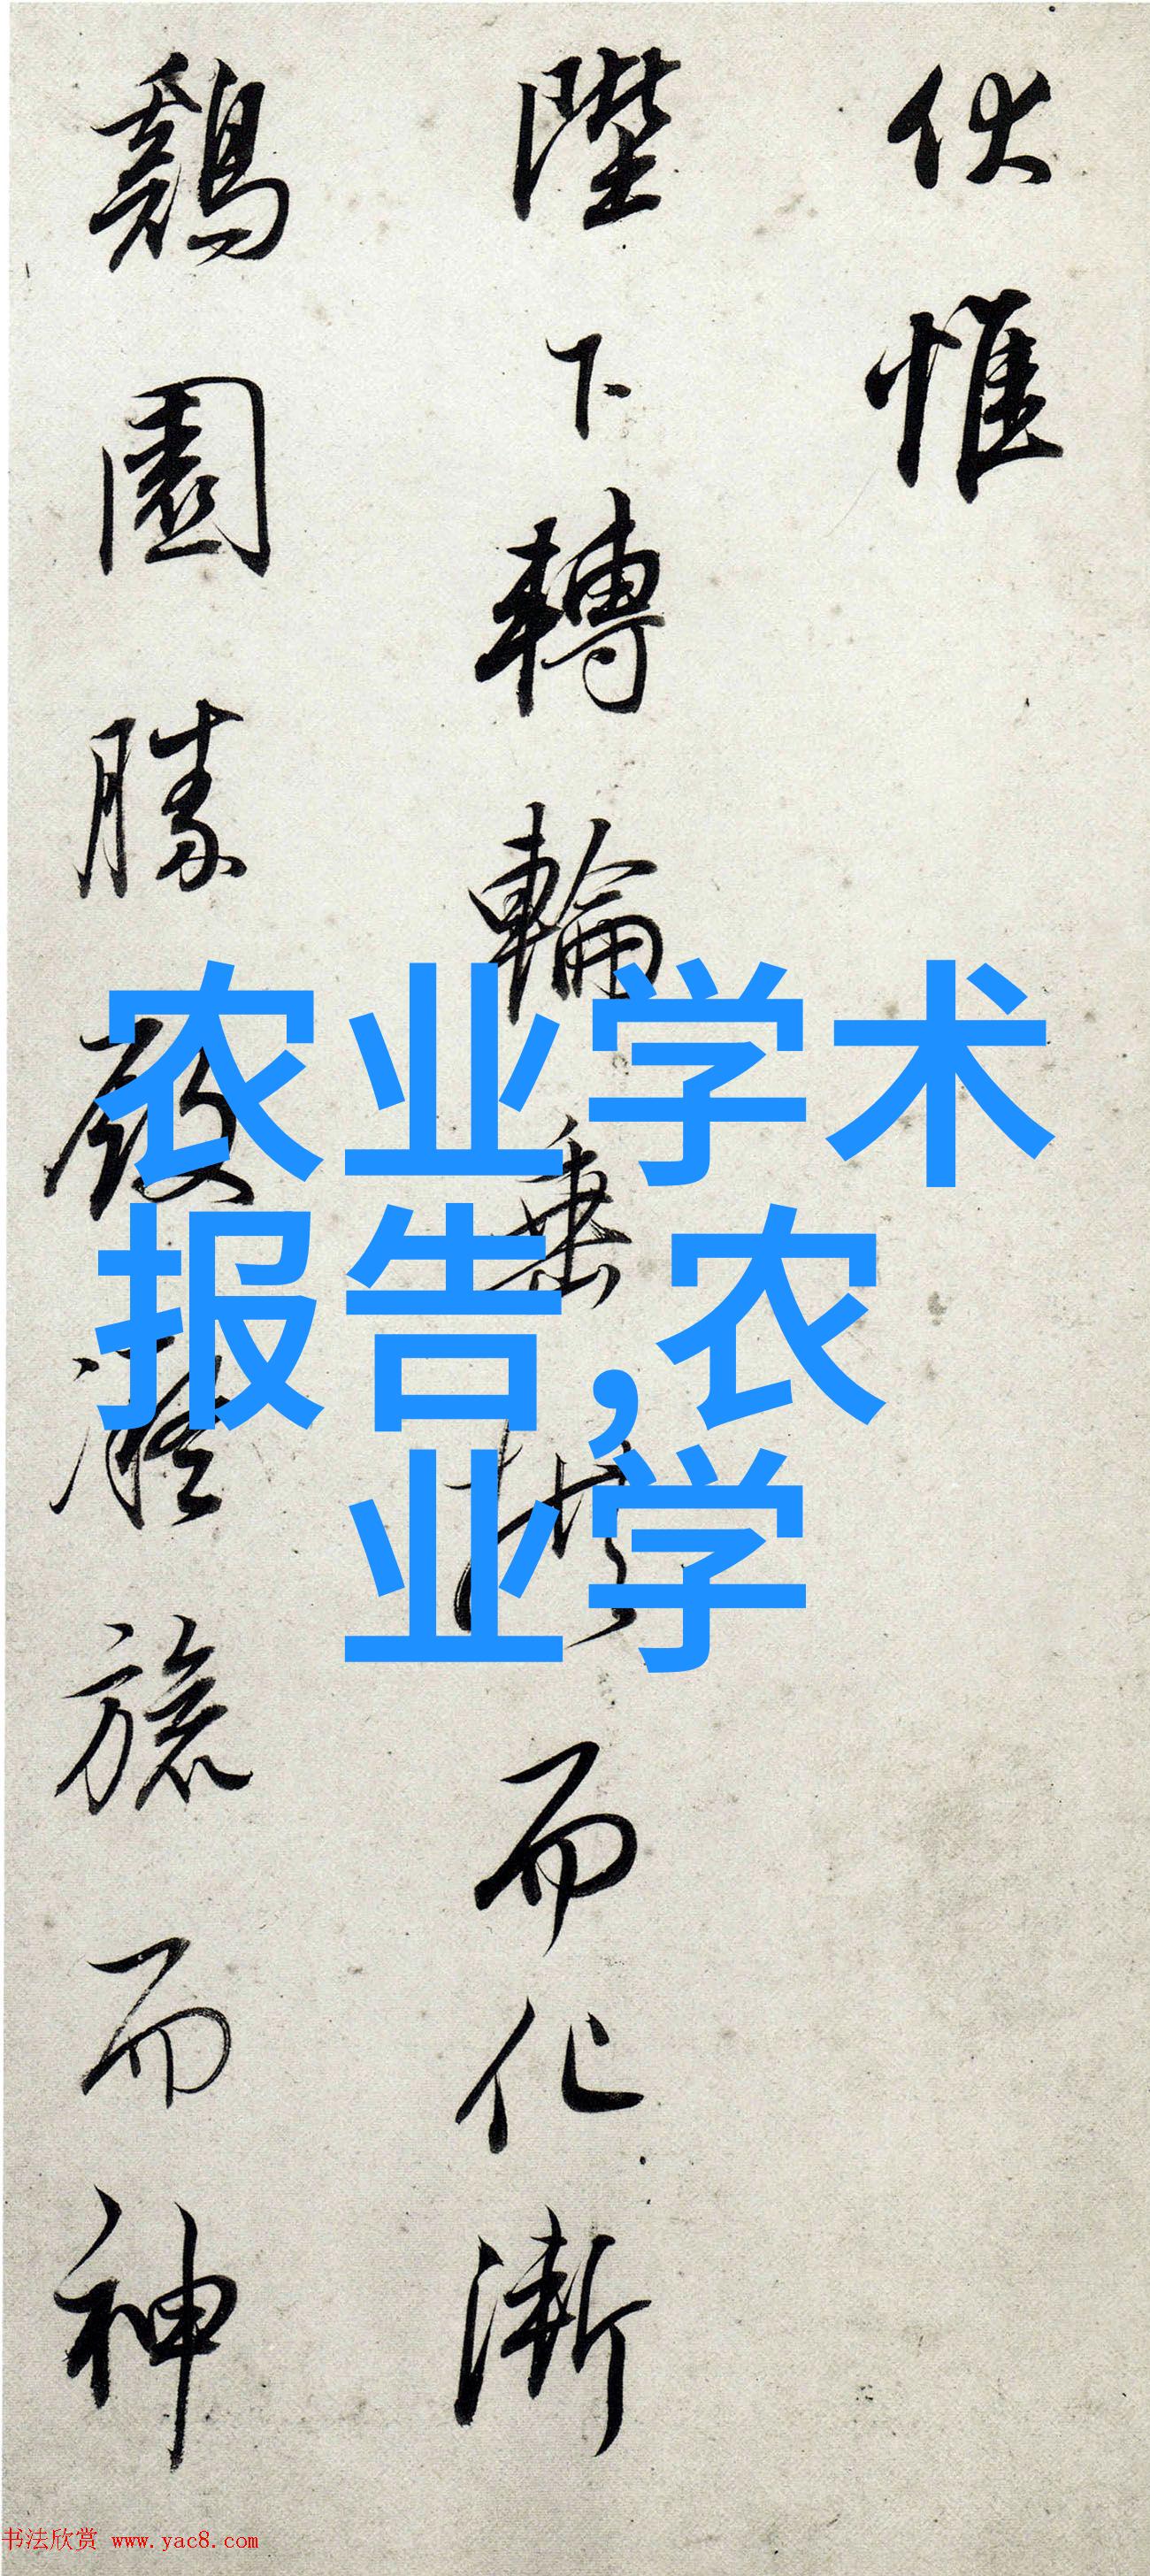 伏惟
陛下轉輪乘拱而化漸
鷄園勝殿凝旒而神
农业学术
报告,农
业学
书法欣赏 www.yac8.com